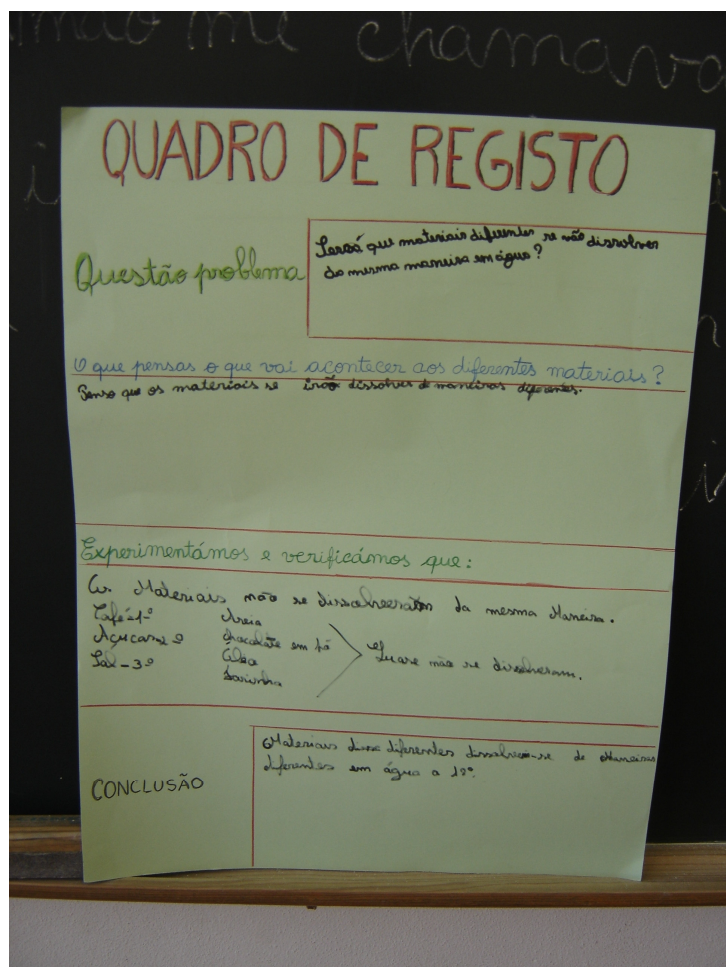 não me chamava
QUADRO DE REGISTO
Questão problema
Será que materiais diferentes se não dissolver
da mesma maneira em água?
O que pensas o que vai acontecer aos diferentes materiais?
Penso que os materiais se irão dissolver de maneiras diferentes.
Experimentámos e verificámos que:
Os Materiais não se dissolveram da mesma Maneira.
Café-1º
Açucar-2º
Sal-3º
Areia
chocolate em pó
Óleo
Farinha
Quase não se dissolveram.
CONCLUSÃO
Materiais diferentes dissolvem-se de Maneiras
diferentes em água a 19º.